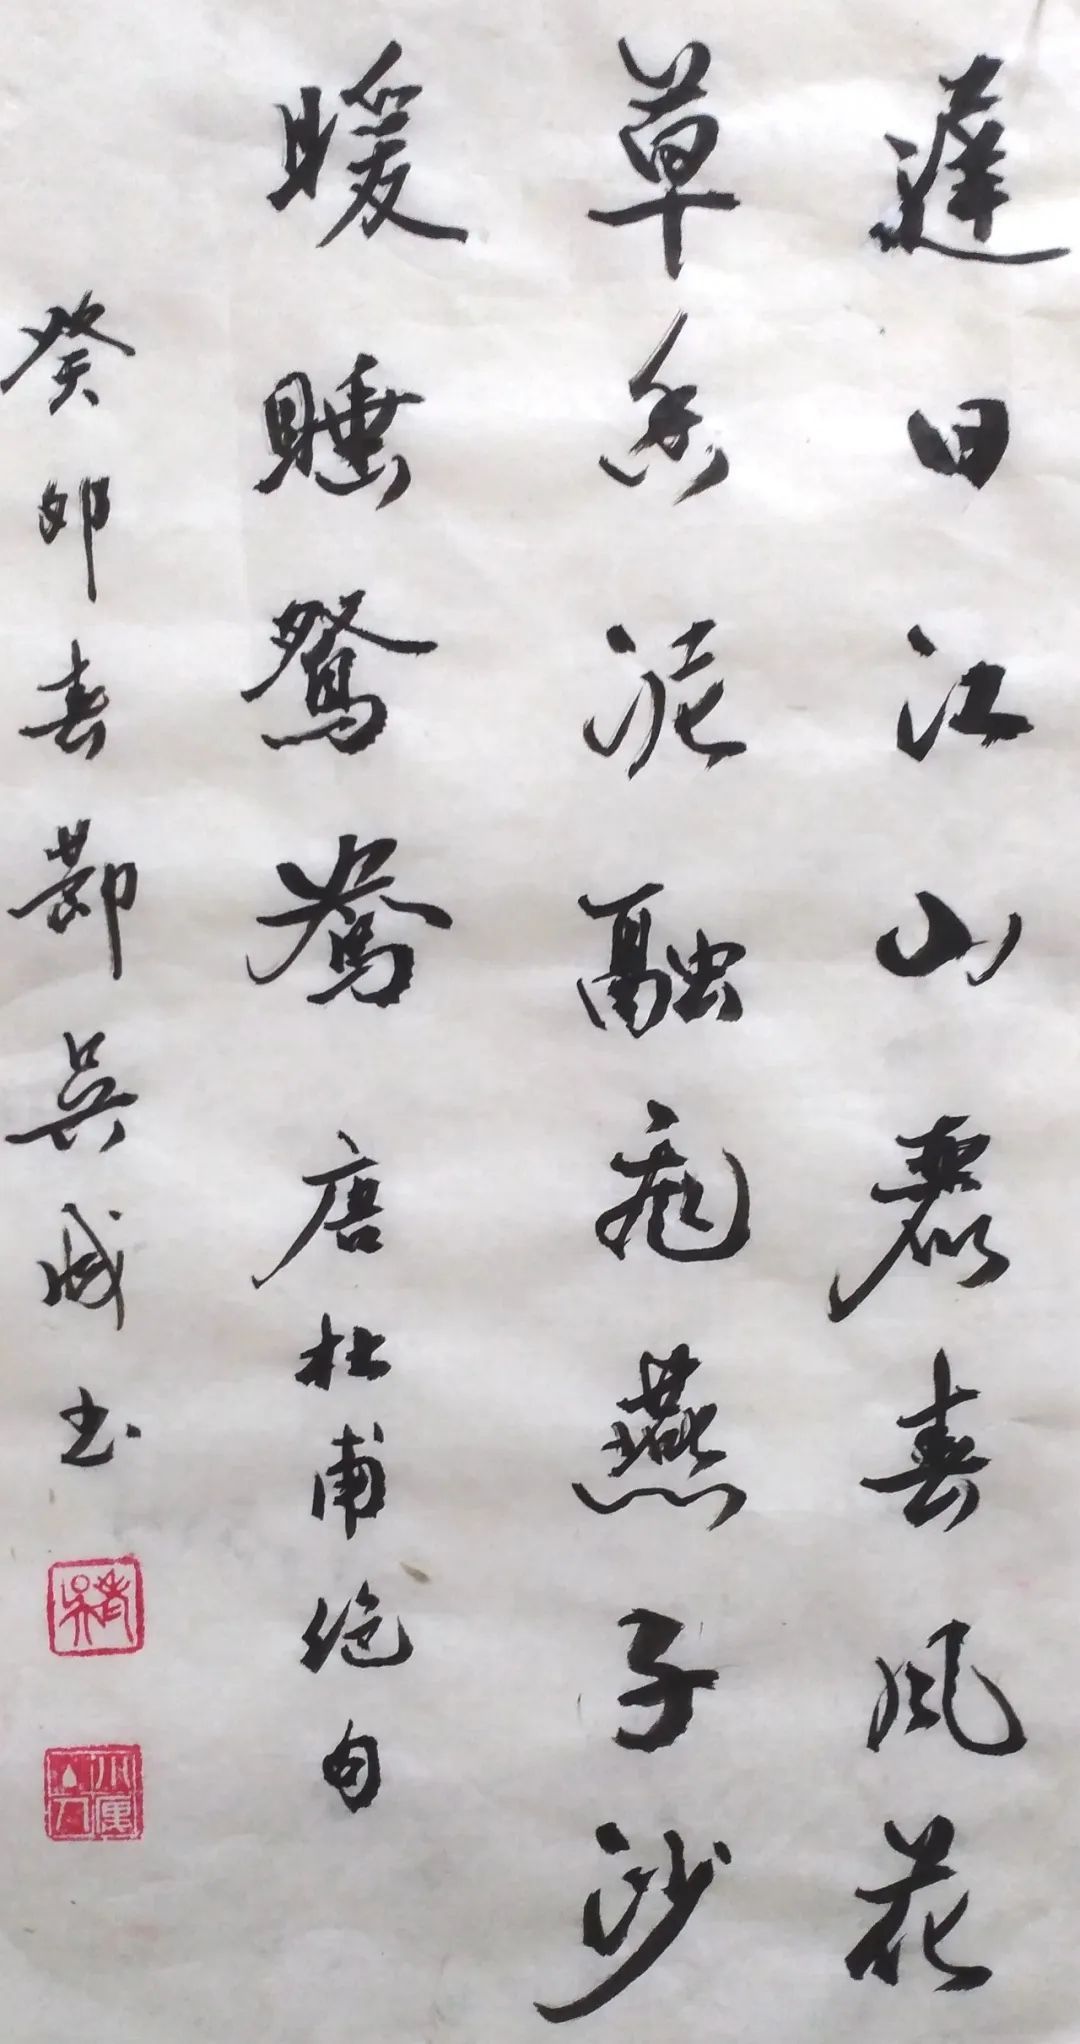 遲日江山麗春風花
草香泥融飛燕子沙
暖睡鴛鴦 唐杜甫絕句
癸卯春鄞吳书